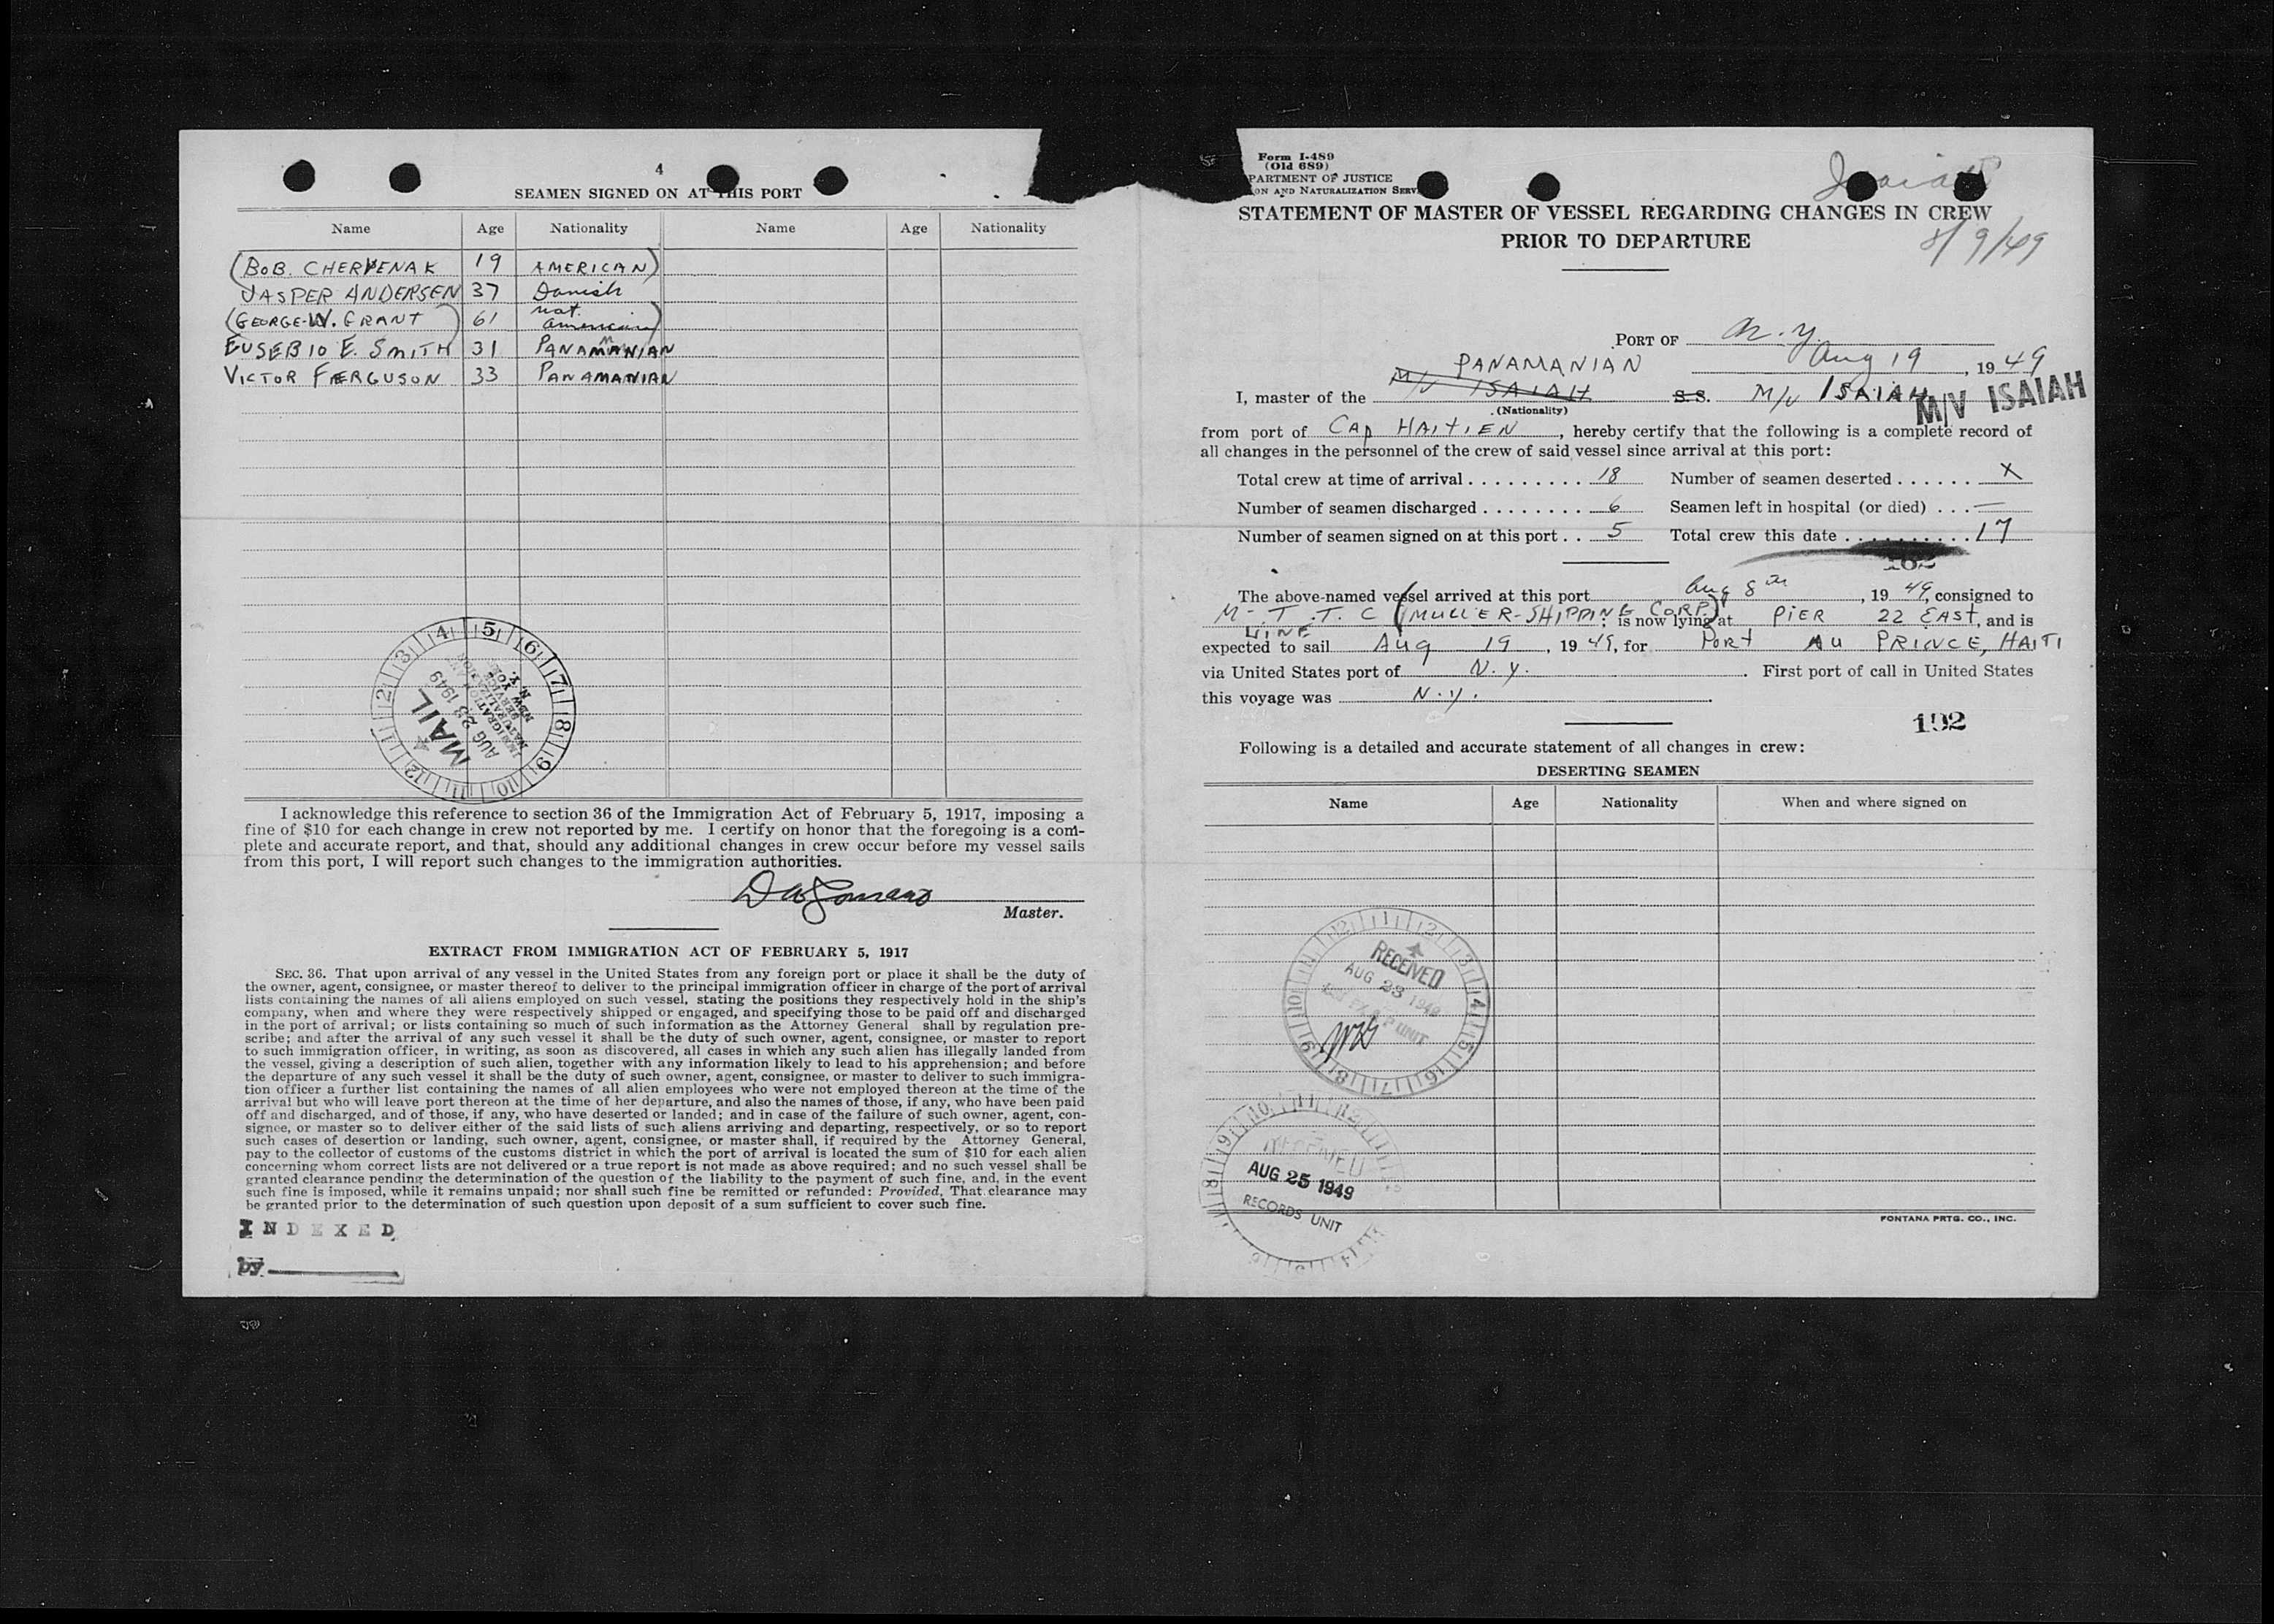 4
SEAMEN SIGNED ON AT THIS PORT
Name Age Nationality Name Age Nationality
(BOB. CHERVENAK 19 AMERICAN)
JASPER ANDERSEN 37 Danish
(GEORGE W. GRANT) 61 nat. american)
EUSEBIO E. SMITH 31 PANAMANIAN
VICTOR FERGUSON 33 PANAMANIAN
MAIL
AUG 23 1949
IMMIGRATION AND
NATURALIZATION
SERVICE
NEW YORK
N.Y.
I acknowledge this reference to section 36 of the Immigration Act of February 5, 1917, imposing a
fine of $10 for each change in crew not reported by me. I certify on honor that the foregoing is a com-
plete and accurate report, and that, should any additional changes in crew occur before my vessel sails
from this port, I will report such changes to the immigration authorities.
Master.
EXTRACT FROM IMMIGRATION ACT OF FEBRUARY 5, 1917
SEC. 36. That upon arrival of any vessel in the United States from any foreign port or place it shall be the duty of
the owner, agent, consignee, or master thereof to deliver to the principal immigration officer in charge of the port of arrival
lists containing the names of all aliens employed on such vessel, stating the positions they respectively hold in the ship's
company, when and where they were respectively shipped or engaged, and specifying those to be paid off and discharged
in the port of arrival; or lists containing so much of such information as the Attorney General shall by regulation pre-
scribe; and after the arrival of any such vessel it shall be the duty of such owner, agent, consignee, or master to report
to such immigration officer, in writing, as soon as discovered, all cases in which any such alien has illegally landed from
the vessel, giving a description of such alien, together with any information likely to lead to his apprehension; and before
the departure of any such vessel it shall be the duty of such owner, agent, consignee, or master to deliver to such immigra-
tion officer a further list containing the names of all alien employees who were not employed thereon at the time of the
arrival but who will leave port thereon at the time of her departure, and also the names of those, if any, who have been paid
off and discharged, and of those, if any, who have deserted or landed; and in case of the failure of such owner, agent, con-
signee, or master so to deliver either of the said lists of such aliens arriving and departing, respectively, or so to report
such cases of desertion or landing, such owner, agent, consignee, or master shall, if required by the Attorney General,
pay to the collector of customs of the customs district in which the port of arrival is located the sum of $10 for each alien
concerning whom correct lists are not delivered or a true report is not made as above required; and no such vessel shall be
granted clearance pending the determination of the question of the liability to the payment of such fine, and, in the event
such fine is imposed, while it remains unpaid; nor shall such fine be remitted or refunded: Provided, That clearance may
be granted prior to the determination of such question upon deposit of a sum sufficient to cover such fine.
INDEXED
by
Form I-489
(Old 689)
PARTMENT OF JUSTICE
ON AND NATURALIZATION SERV
Isaiah
STATEMENT OF MASTER OF VESSEL REGARDING CHANGES IN CREW
PRIOR TO DEPARTURE
8/9/49
PORT OF N.Y.
Aug 19, 1949
PANAMANIAN
I, master of the M/V ISAIAH S.S. M/V ISAIAH M/V ISAIAH
(Nationality)
from port of CAP HAITIEN, hereby certify that the following is a complete record of
all changes in the personnel of the crew of said vessel since arrival at this port:
Total crew at time of arrival 18 Number of seamen deserted X
Number of seamen discharged 6 Seamen left in hospital (or died) —
Number of seamen signed on at this port 5 Total crew this date 17
The above-named vessel arrived at this port Aug 8th, 1949, consigned to
M.T.T.C (MULLER-SHIPPING CORP.) is now lying at PIER 22 EAST, and is
LINE
expected to sail Aug 19, 1949, for PORT AU PRINCE, HAITI
via United States port of N.Y. First port of call in United States
this voyage was N.Y.
192
Following is a detailed and accurate statement of all changes in crew:
DESERTING SEAMEN
Name Age Nationality When and where signed on
RECEIVED
AUG 23 1949
UNIT
RECEIVED
AUG 25 1949
RECORDS UNIT
FONTANA PRTG. CO., INC.